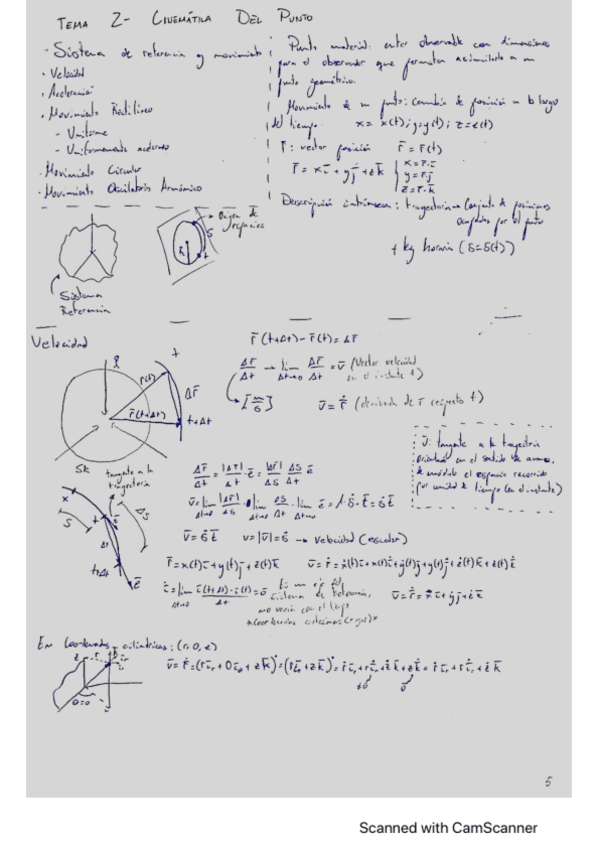 TEMA 2- CINEMÁTICA DEL PUNTO
· Sistema de referencia y movimiento
· Velocidad
· Aceleración
· Movimiento Rectilíneo
- Uniforme
- Uniformemente acelerado
· Movimiento Circular
· Movimiento Oscilatorio Armónico
Punto material: enter observable con dimensiones
para el observador que permiten asimilarlo a un
punto geométrico.
Movimiento de un punto: cambio de posición a lo largo
del tiempo x = x(t); y=y(t); z=z(t)
r̄: vector posición r̄ = r̄(t)
r̄ = xī + yj̄ + zk̄
x = r̄·ī
y = r̄·j̄
z = r̄·k̄
Descripción intrínseca: trayectoria → Conjunto de posiciones
ocupadas por el punto
+ ley horaria (s=s(t))
Origen de
espacios
s
t
Sistema
Referencia
Velocidad
r̄(t+Δt) - r̄(t) = Δr̄
Δr̄/Δt → lim Δt→0 Δr̄/Δt = v̄ (Vector velocidad
en el instante t)
[m/s] v̄ = ṙ̄ (derivada de r̄ respecto t)
t
r̄(t)
Δr̄
r̄(t+Δt)
t+Δt
v̄: tangente a la trayectoria
orientado en el sentido de avance,
de módulo el espacio recorrido
por unidad de tiempo (en el instante)
tangente a la
trayectoria
x
s
t
Δs
t+Δt
Δr̄/Δt = |Δr̄|/Δt ē = |Δr̄|/Δs Δs/Δt ē
v̄ = lim Δt→0 |Δr̄|/Δs · lim Δt→0 Δs/Δt · lim Δt→0 ē = 1·ṡ·t̄ = ṡt̄
v̄ = ṡt̄ v = |v̄| = ṡ → velocidad (escalar)
r̄ = x(t)ī + y(t)j̄ + z(t)k̄
En Coordenadas cilíndricas: (r, θ, z)
z
θ=0
5
Scanned with CamScanner